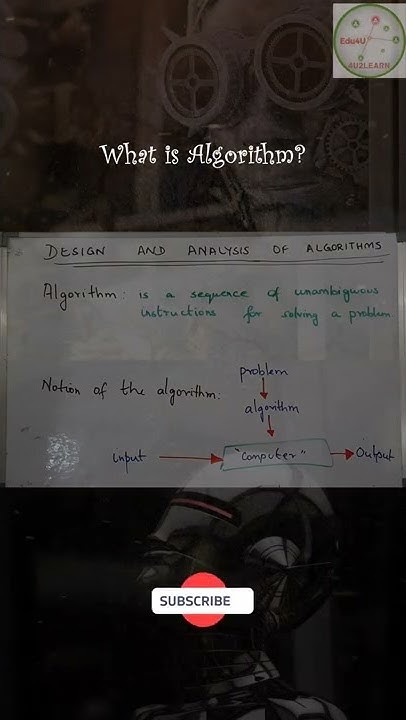 Edu4U
4U2LEARN
What is Algorithm?
DESIGN AND ANALYSIS OF ALGORITHMS
Algorithm: is a sequence of unambiguous
instructions for solving a problem
Notion of the algorithm:
problem
algorithm
input
"Computer"
Output
SUBSCRIBE